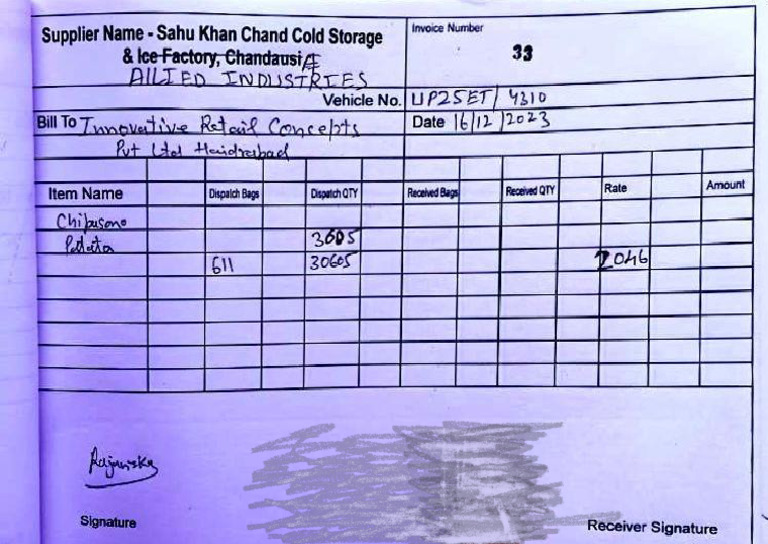 Supplier Name - Sahu Khan Chand Cold Storage
& Ice Factory, Chandausi
ALLIED INDUSTRIES
Invoice Number
33
Vehicle No. UP25ET/4310
Bill To Innovative Retail Concepts
Date 16/12/2023
Pvt Ltd Haidrabad
Item Name Dispatch Bags Dispatch QTY Received Bags Received QTY Rate Amount
Chipusona
Potato 3605
611 30605 2046
Signature Receiver Signature